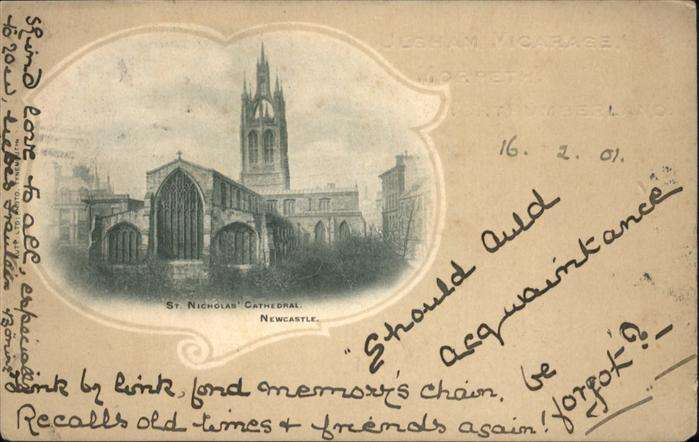 ULGHAM VICARAGE,
MORPETH,
NORTHUMBERLAND.
16. 2. 01.
ST. NICHOLAS' CATHEDRAL.
NEWCASTLE.
"Should Auld
acquaintance
be
forgot"?
Link by link, fond memory's chain,
Recalls old times & friends again!
kind love to all, especially
to you, liebes Fraulein